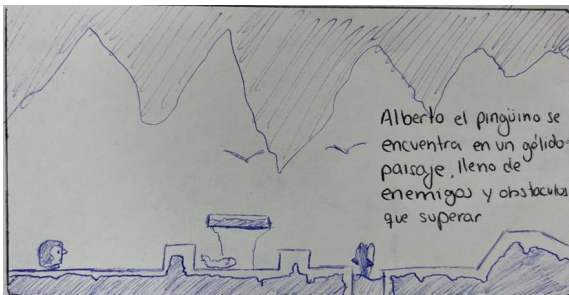 Alberto el pingüino se
encuentra en un gélido
paisaje, lleno de
enemigos y obstaculos
que superar